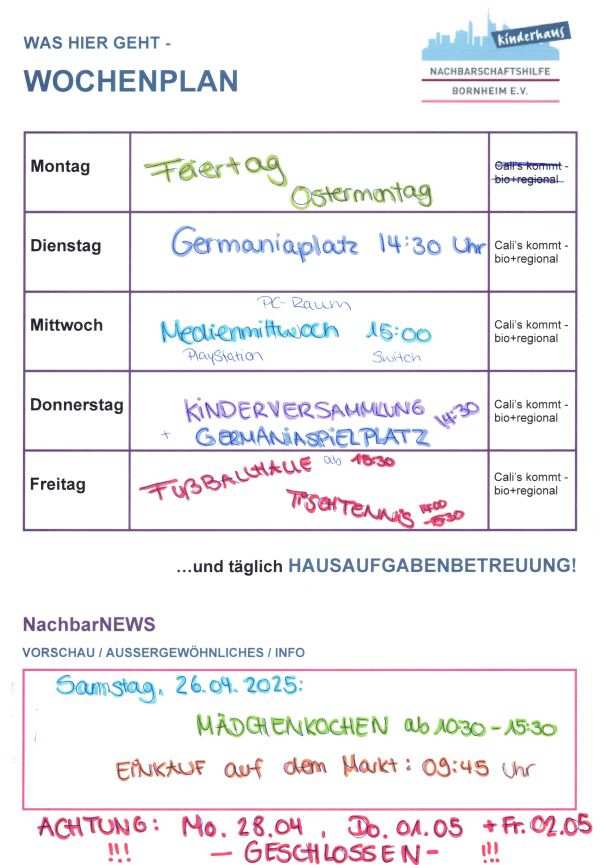 WAS HIER GEHT -
WOCHENPLAN
kinderhaus
NACHBARSCHAFTSHILFE
BORNHEIM E.V.
Montag
Feiertag
Ostermontag
Cali's kommt -
bio+regional
Dienstag
Germaniaplatz 14:30 Uhr
Cali's kommt -
bio+regional
Mittwoch
PC-Raum
Medienmittwoch 15:00
PlayStation Switch
Cali's kommt -
bio+regional
Donnerstag
KINDERVERSAMMLUNG 14:30
+ GERMANIASPIELPLATZ
Cali's kommt -
bio+regional
Freitag
FUßBALLHALLE ab 15:30
TISCHTENNIS 14:00
-15:30
Cali's kommt -
bio+regional
...und täglich HAUSAUFGABENBETREUUNG!
NachbarNEWS
VORSCHAU / AUSSERGEWÖHNLICHES / INFO
Samstag, 26.04.2025:
MÄDCHENKOCHEN ab 10:30-15:30
EINKAUF auf dem Markt: 09:45 Uhr
ACHTUNG: Mo. 28.04, Do. 01.05 + Fr. 02.05
!!! - GESCHLOSSEN - !!!